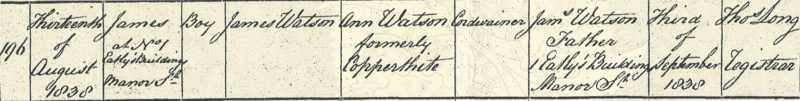 196
Thirteenth
of
August
1838
James
at No 1
Eatly's Building
Manor St.
Boy
James Watson
Ann Watson
formerly
Copperthite
Cordwainer
Jams Watson
Father
1 Eatly's Building
Manor St.
Third
of
September
1838
Thos Long
Registrar